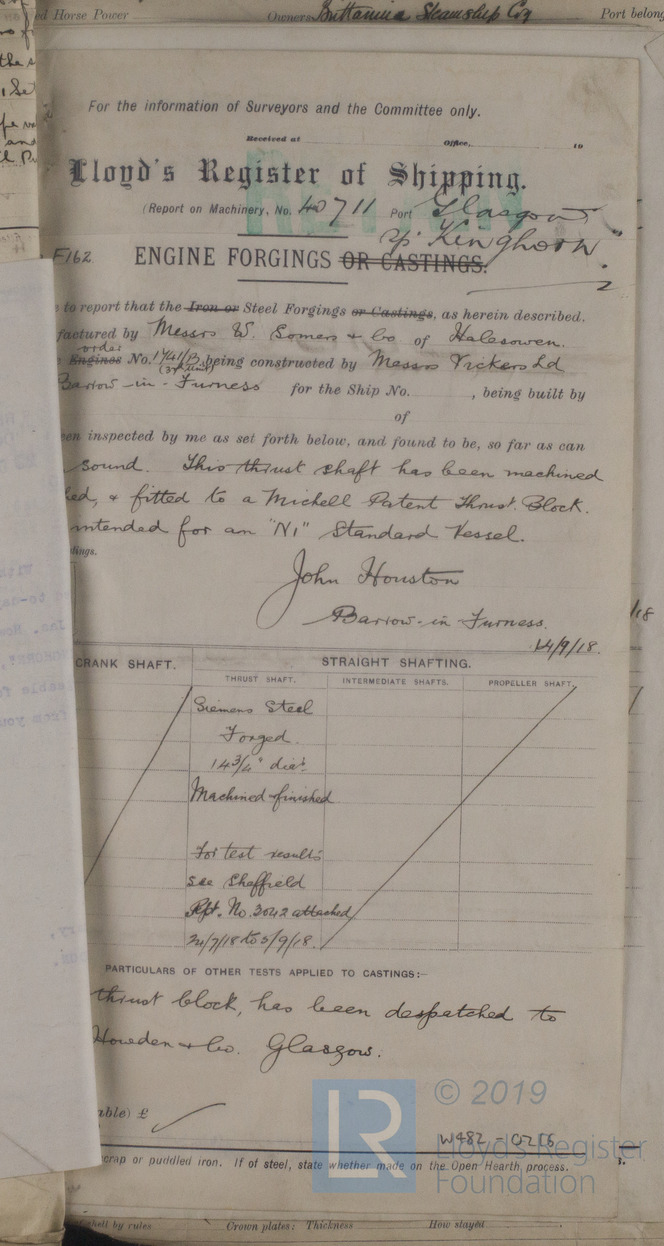 ed Horse Power Owners Brittannia Steamship Coy Port belong
For the information of Surveyors and the Committee only.
Received at Office, 19
Lloyd's Register of Shipping.
(Report on Machinery, No. 40711 Port Glasgow
"Kinghorn"
F162. ENGINE FORGINGS OR CASTINGS.
e to report that the Iron or Steel Forgings or Castings, as herein described.
factured by Messrs W. Somers & Co of Halesowen.
order
Engines No. 1741/B being constructed by Messrs Vickers Ld
Barrow-in-Furness for the Ship No. , being built by
of
een inspected by me as set forth below, and found to be, so far as can
sound. This thrust shaft has been machined
ed, & fitted to a Michell Patent Thrust Block.
intended for an "N1" Standard Vessel.
tings.
John Houston
Barrow-in-Furness.
14/9/18.
CRANK SHAFT. STRAIGHT SHAFTING.
THRUST SHAFT. INTERMEDIATE SHAFTS. PROPELLER SHAFT.
Siemens Steel
Forged.
14 3/4" diar.
Machined & finished
For test results
see Sheffield
Rpt. No. 3042 attached
24/7/18 to 5/9/18.
PARTICULARS OF OTHER TESTS APPLIED TO CASTINGS:—
thrust block, has been despatched to
Howden & Co. Glasgow.
able) £
© 2019
W482-0216
Lloyd's Register
Foundation
crap or puddled iron. If of steel, state whether made on the Open Hearth process.
by rules Crown plates: Thickness How stayed